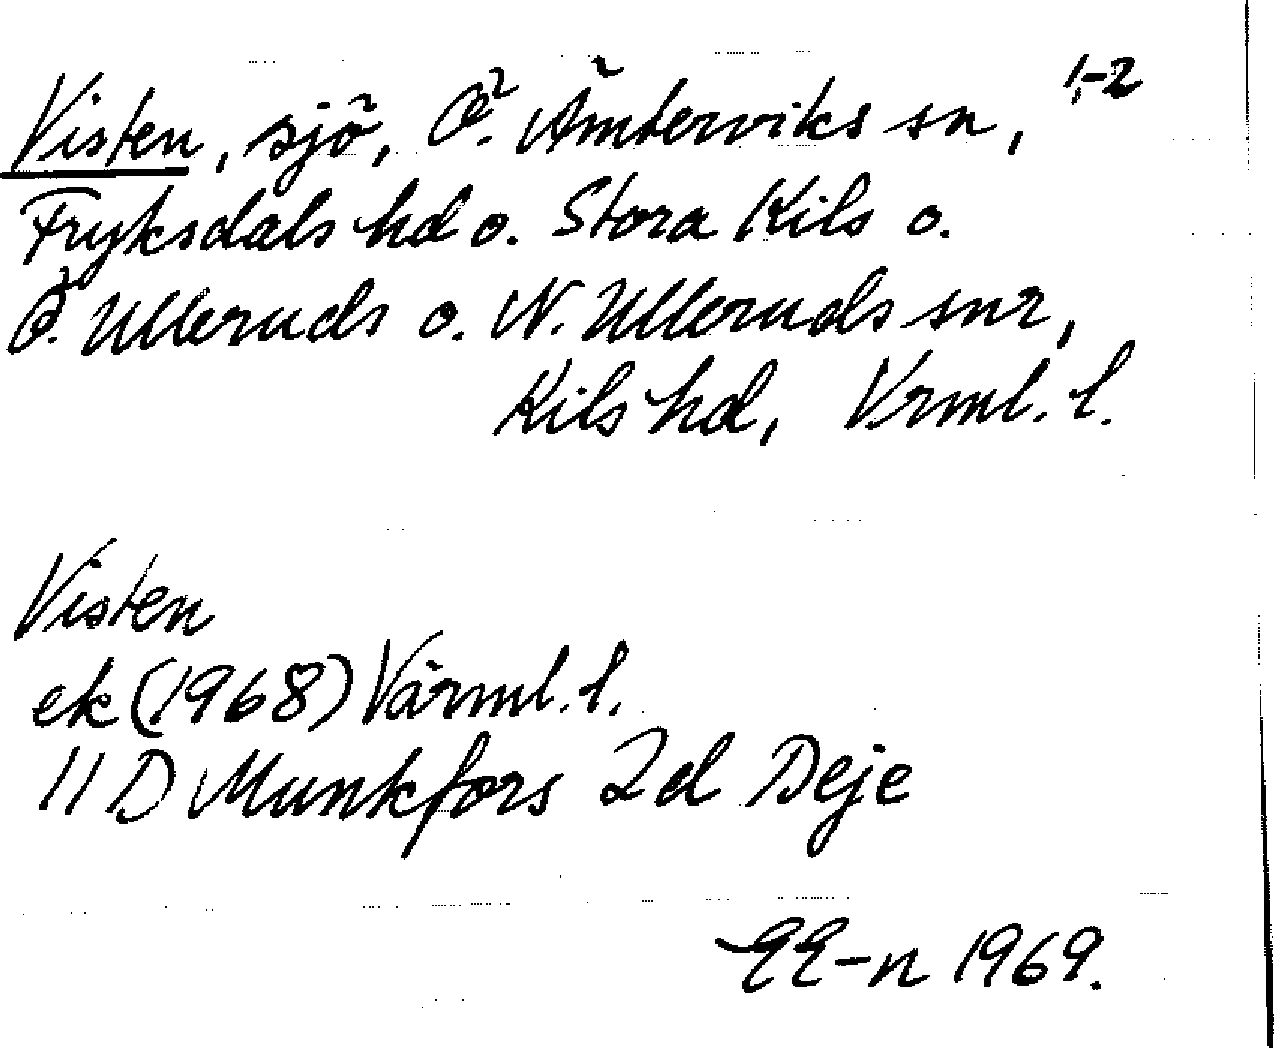 Visten, sjö, Ö. Ämterviks sn, 1,-2
Fryksdals hd o. Stora Kils o.
Ö. Ulleruds o. N. Ulleruds snr,
Kils hd, Vrml. l.
Visten
ek (1968) Värml. l.
11 D Munkfors 2d Deje
EE-n 1969.